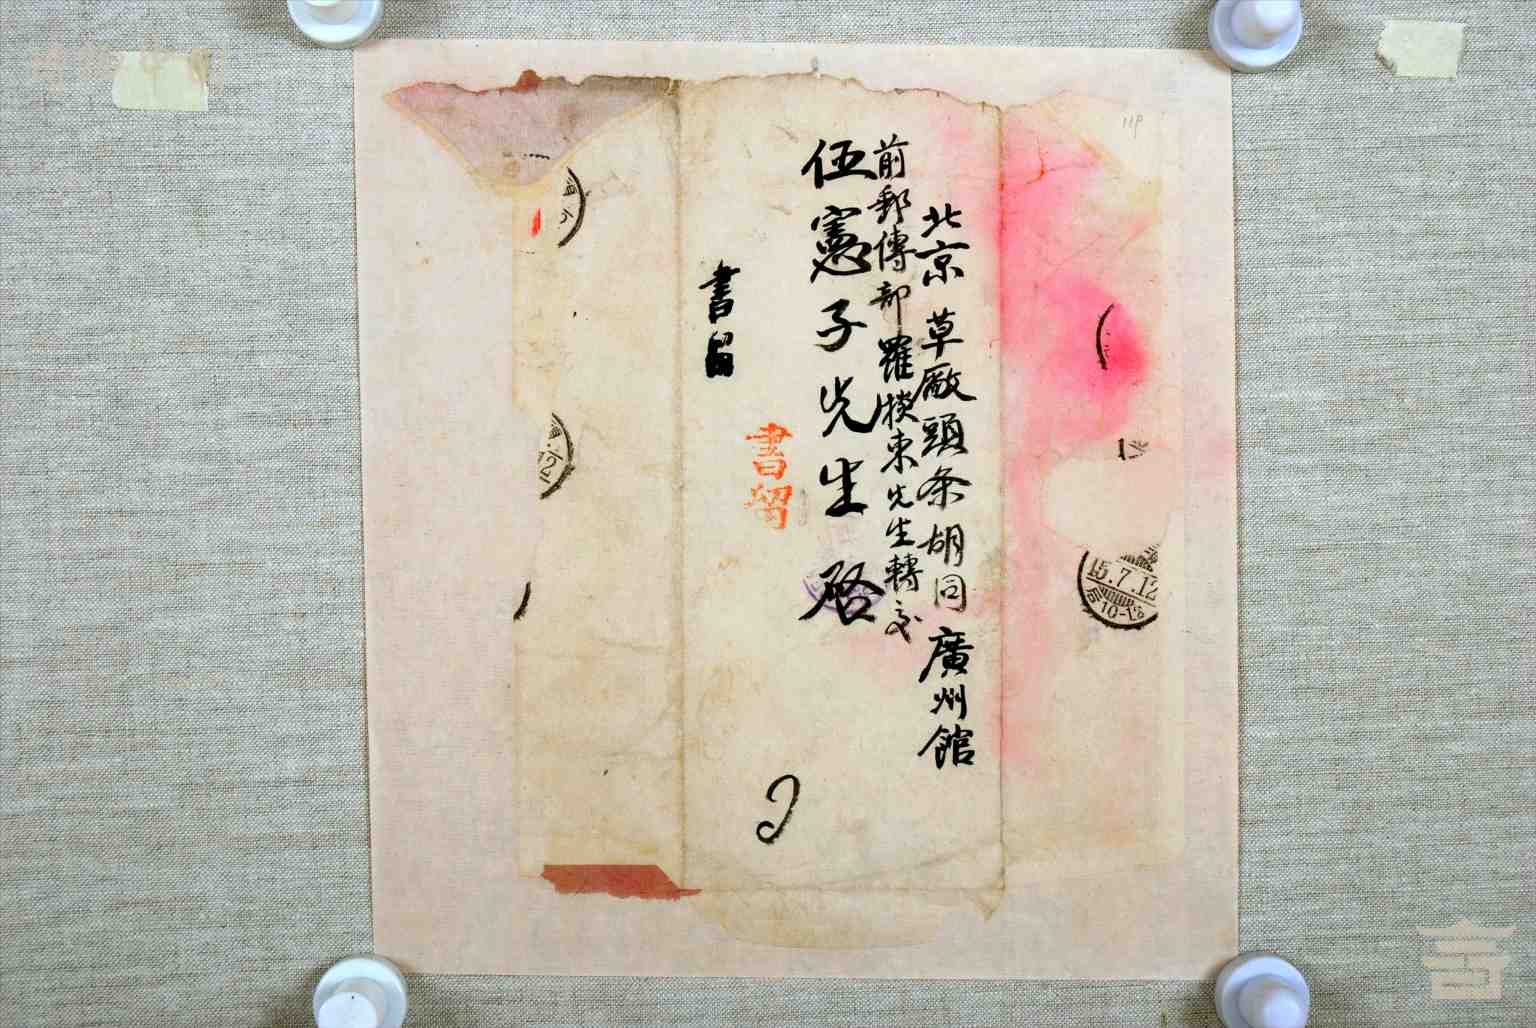 北京草厰頭条胡同廣州館
前郵傳部羅掞東先生轉交
伍憲子先生啓
書留
書留
119
15.7.12
10-12